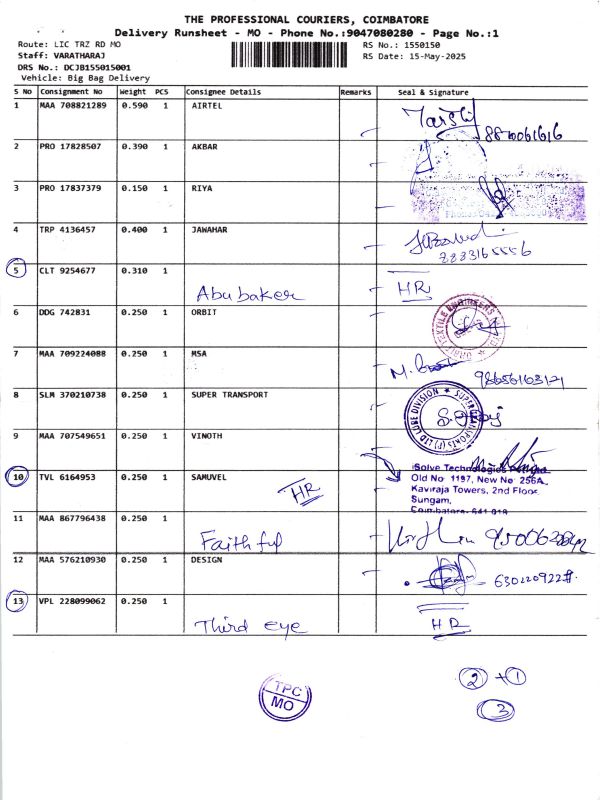 THE PROFESSIONAL COURIERS, COIMBATORE
Delivery Runsheet - MO - Phone No.:9047080280 - Page No.:1
Route: LIC TRZ RD MO
RS No.: 1550150
Staff: VARATHARAJ
RS Date: 15-May-2025
DRS No.: DCJB155015001
Vehicle: Big Bag Delivery
S NO Consignment No Weight PCS Consignee Details Remarks Seal & Signature
1 MAA 708821289 0.590 1 AIRTEL
8870061616
2 PRO 17828507 0.390 1 AKBAR
3 PRO 17837379 0.150 1 RIYA
4 TRP 4136457 0.400 1 JAWAHAR
8883165556
5 CLT 9254677 0.310 1
Abubaker HR
6 DDG 742831 0.250 1 ORBIT
7 MAA 709224088 0.250 1 MSA
8 SLM 370210738 0.250 1 SUPER TRANSPORT
9 MAA 707549651 0.250 1 VINOTH
10 TVL 6164953 0.250 1 SAMUVEL
HR
iSolve Technologies
Old No: 1197, New No: 256A,
Kaviraja Towers, 2nd Floor,
Sungam,
11 MAA 867796438 0.250 1
Faithful
12 MAA 576210930 0.250 1 DESIGN
13 VPL 228099062 0.250 1
Third eye HR
TPC
MO
2 + 1
3